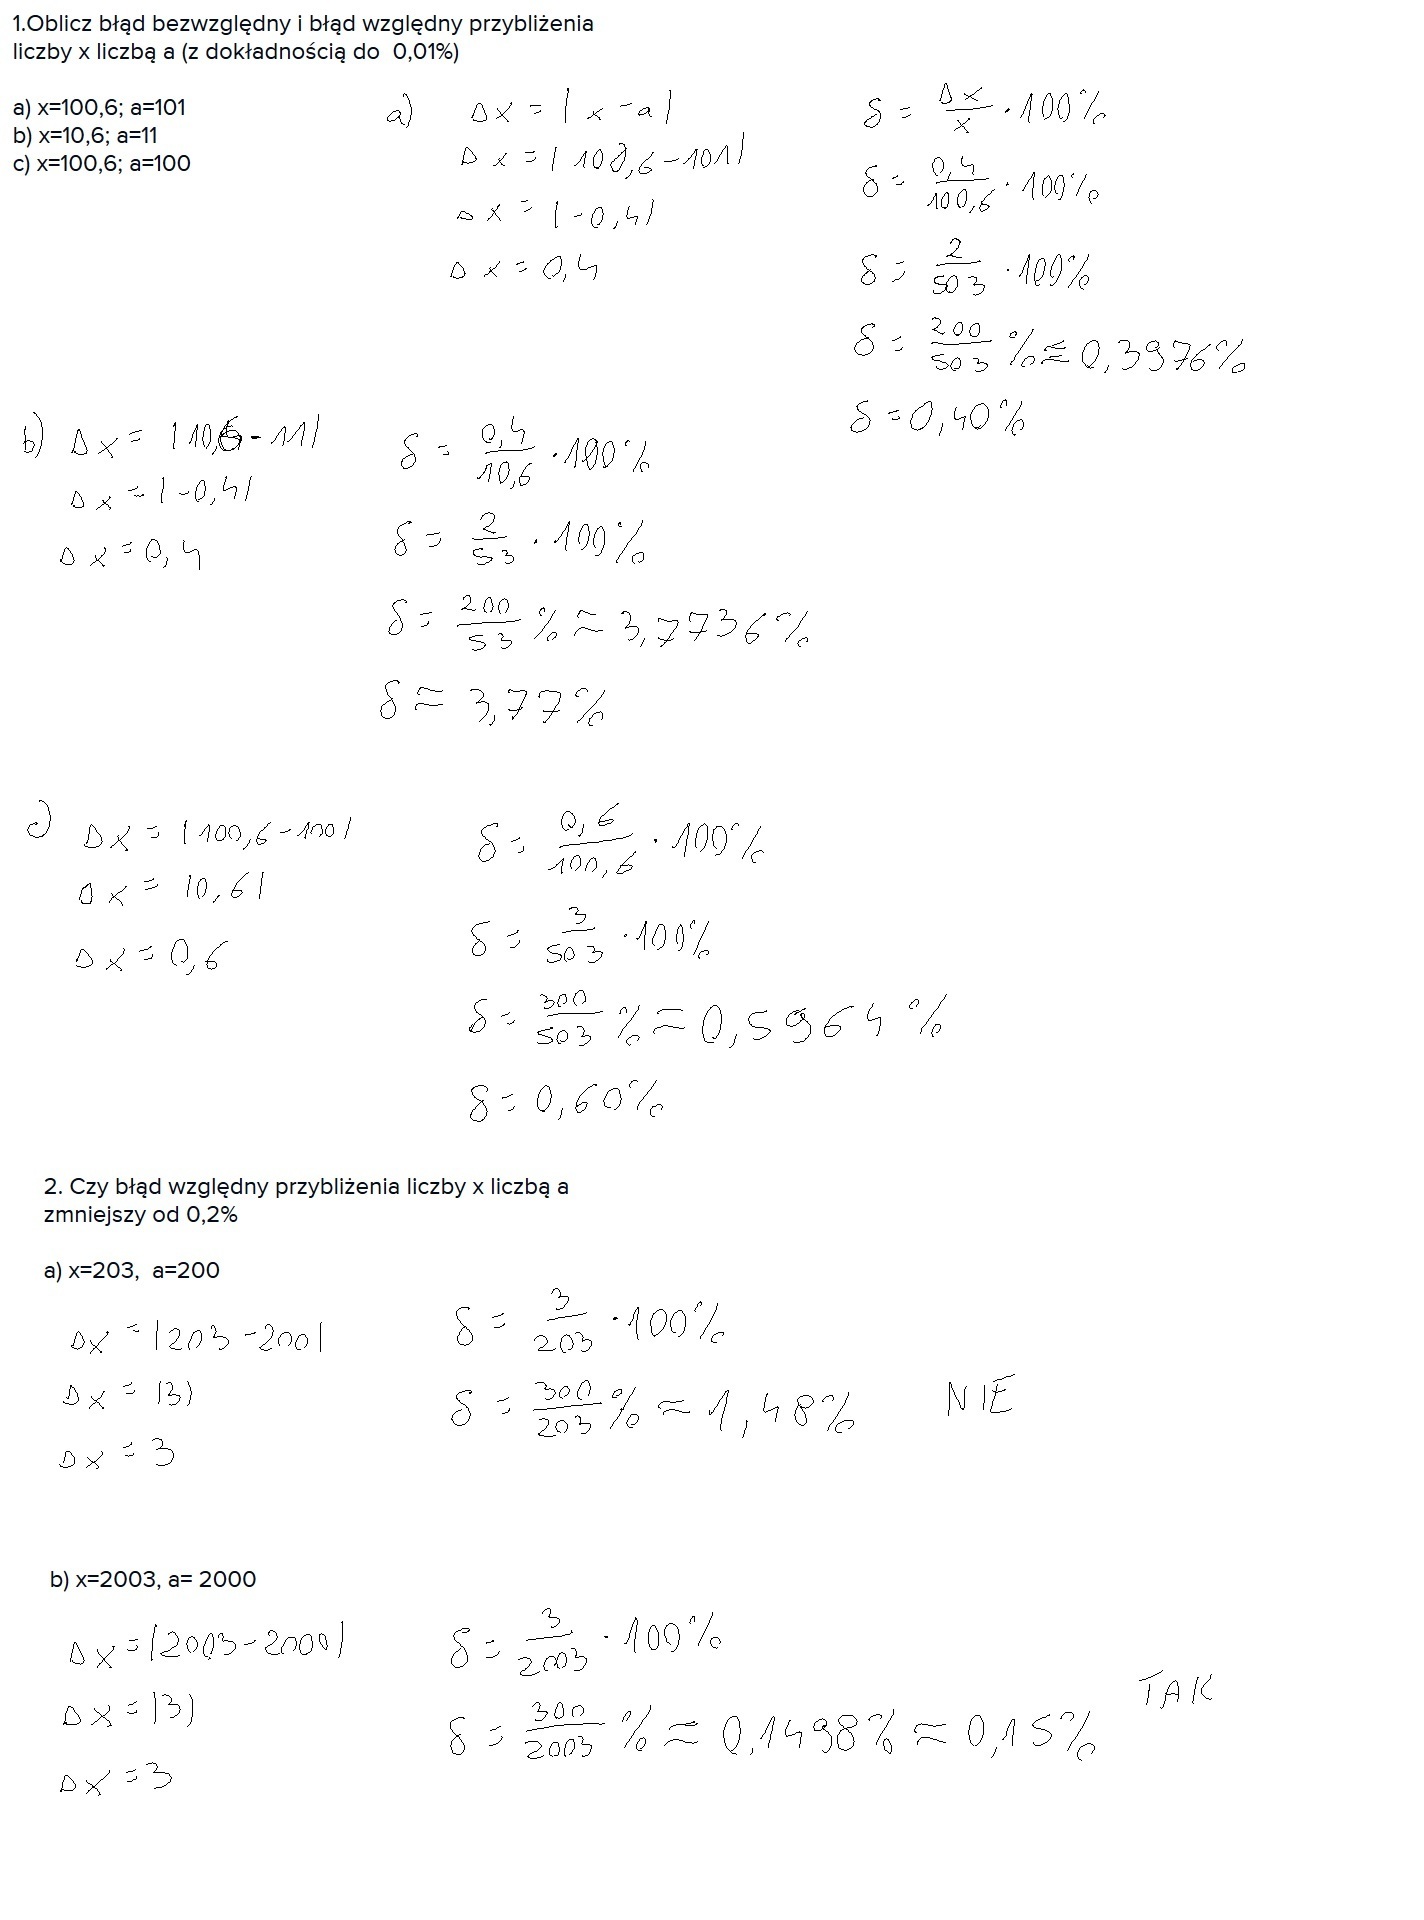 1.Oblicz błąd bezwzględny i błąd względny przybliżenia
liczby x liczbą a (z dokładnością do  0,01%)
a) x=100,6; a=101
b) x=10,6; a=11
c) x=100,6; a=100
a) Δx = |x-a|
Δx = |100,6-101|
Δx = |-0,4|
Δx = 0,4
δ = Δx/x · 100%
δ = 0,4/100,6 · 100%
δ = 2/503 · 100%
δ = 200/503 % ≈ 0,3976%
δ = 0,40%
b) Δx = |10,6-11|
Δx = |-0,4|
Δx = 0,4
δ = 0,4/10,6 · 100%
δ = 2/53 · 100%
δ = 200/53 % ≈ 3,7736%
δ ≈ 3,77%
c) Δx = |100,6-100|
Δx = |0,6|
Δx = 0,6
δ = 0,6/100,6 · 100%
δ = 3/503 · 100%
δ = 300/503 % ≈ 0,5964%
δ = 0,60%
2. Czy błąd względny przybliżenia liczby x liczbą a
zmniejszy od 0,2%
a) x=203,  a=200
Δx = |203-200|
Δx = |3|
Δx = 3
δ = 3/203 · 100%
δ = 300/203 % ≈ 1,48% NIE
b) x=2003, a= 2000
Δx = |2003-2000|
Δx = |3|
Δx = 3
δ = 3/2003 · 100%
δ = 300/2003 % ≈ 0,1498% ≈ 0,15% TAK